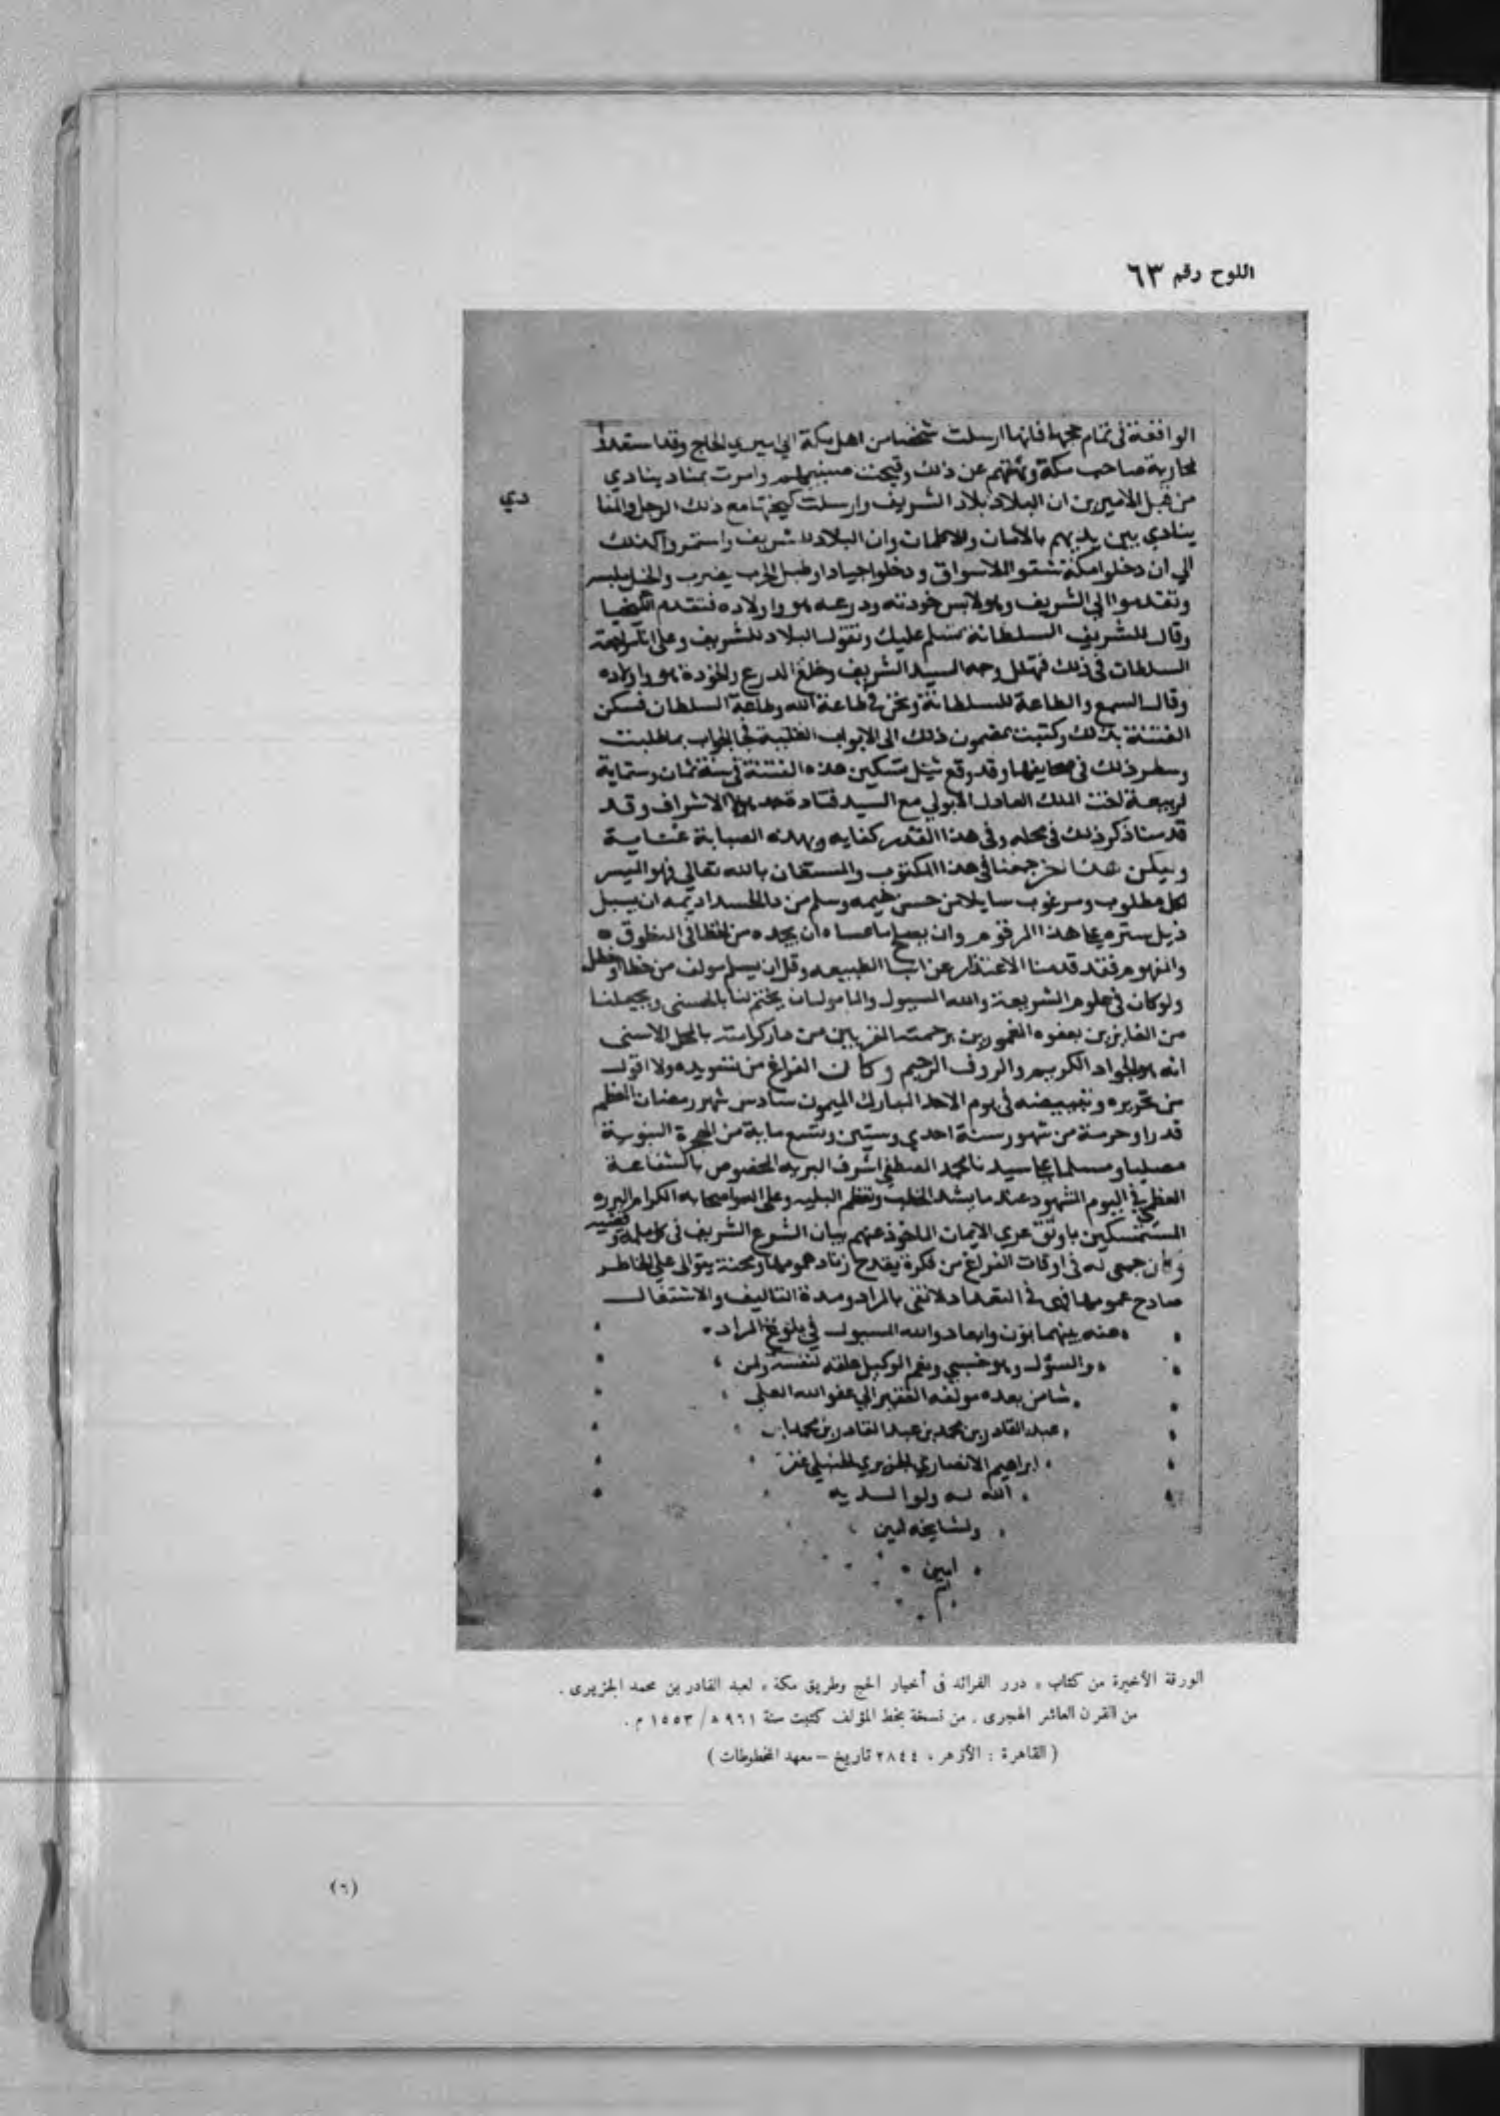 اللوح رقم ٦٣
الواقعة في تمام حجها فانها ارسلت شخصا من اهل مكة الي اميري الحاج وقد استعدا
لمحاربة صاحب مكة ونهتهم عن ذلك وقبحت وامرت بمناد ينادي
من قبل الاميرين ان البلاد بلاد الشريف وارسلت مع ذلك الرجل
دي
ينادي بين يديهم بالامان والاطمان وان البلاد للشريف واستمروا كذلك
الي ان دخلوا مكة شقوا الاسواق ودخلوا اجياد وطبل الحرب يضرب والخيل
وتقدموا الي الشريف وهو لابس خودته ودرعه هو واولاده فتقدم
وقال للشريف السلطانة تسلم عليك وتقول البلاد للشريف وعلي
السلطان في ذلك فتهلل وجه السيد الشريف وخلع الدرع والخودة هو واولاده
وقال السمع والطاعة للسلطانة ونحن في طاعة الله وطاعة السلطان فسكن
الفتنة بذلك وكتبت بمضمون ذلك الي الابواب بما طلبت
وسطر ذلك في صحايفها وقد وقع مثل تسكين هذه الفتنة في سنة ثمان وستماية
لربيعة اخت الملك العادل الايوبي مع السيد قتادة الاشراف وقد
قدمنا ذكر ذلك في محله وفي هذا القدر كفايه وبهذه الصبابة
وليكن هذا اخر جمعنا في هذا المكتوب والمستعان بالله تعالي فهو الميسر
لكل مطلوب ومرغوب سايلا من حسن خيمه وسلم من دا الحسد اديمه ان يسبل
ذيل ستره علي هذا المرقوم وان يصلح ما عساه ان يجده من الخطا في المنطوق
والمفهوم فقد قدمنا الاعتذار عن الطبيعه وقل ان يسلم مولف من خطا او خطل
ولو كان في علوم الشريعة والله المسيول والمامول ان يختم لنا بالحسني ويجعلنا
من الفايزين بعفوه المغمورين برحمته من دار كرامته بالمحل الاسني
انه هو الجواد الكريم والروف الرحيم وكان الفراغ من تسويده ولا اقول
من تحريره وتبييضه في يوم الاحد المبارك الميمون سادس شهر رمضان المعظم
قدرا وحرمة من شهور سنة احدي وستين وتسع ماية من الهجرة النبوية
مصليا ومسلما علي سيدنا محمد المصطفي اشرف البريه المخصوص بالشفاعة
العظمي في اليوم المشهود عندما يشتد الخطب وتعظم البليه وعلي اله واصحابه الكرام البرره
المستمسكين باوثق عري الايمان الماخوذ عنهم بيان الشرع الشريف في كل وقضيه
وكان جمعي له في اوقات الفراغ من فكرة يقدح زناد همومها ومحنة يتوالي علي الخاطر
صادح في التعداد لانني بالمراد ومدة التاليف والاشتغال
عنه بينهما بون وابعاد والله المسيول في بلوغ المراد
والسؤل وهو حسبي ونعم الوكيل علقه لنفسه ولمن
شا من بعده مولفه الفقير الي عفو الله العلي
عبد القادر بن محمد بن عبد القادر بن محمد بن
ابراهيم الانصاري الجزيري الحنبلي غفر
الله له ولوالديه
ولمشايخه امين
امين
الورقة الأخيرة من كتاب « درر الفرائد فى أخبار الحج وطريق مكة » لعبد القادر بن محمد الجزيرى .
من القرن العاشر الهجرى . من نسخة بخط المؤلف كتبت سنة ٩٦١ ه / ١٥٥٣ م .
( القاهرة : الأزهر ، ٢٨٤٤ تاريخ – معهد المخطوطات )
(٦)